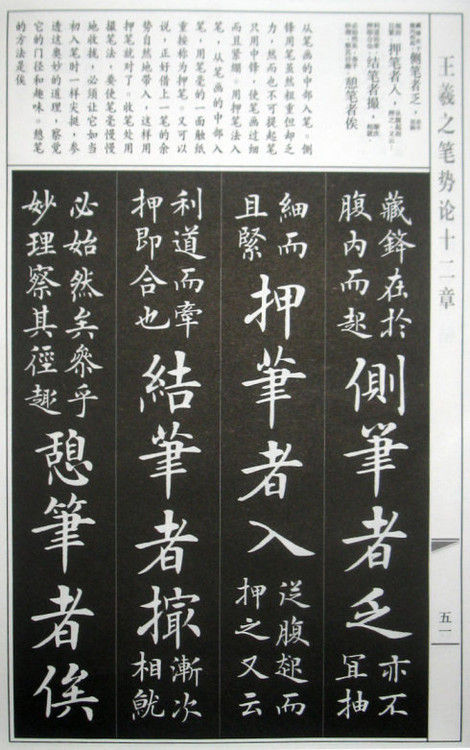 王羲之笔势论十二章
侧笔者乏，
押笔者入，
结笔者撮，
憩笔者俟
从笔画的中部入笔。侧
锋用笔虽然粗重但却乏
力，然而也不可提起笔
只用中锋，使笔画过细
而且紧缩。用押笔法入
笔，从笔画的中部入
笔，用笔毫的一面触纸
重按称为押笔。又可以
说，正好借上一笔的余
势自然地带入，这样用
押笔就对了。收笔处用
撮笔法，要使笔毫慢慢
地收拢，必须让它如当
初入笔时一样尖挺，参
透这奥妙的道理，察觉
它的门径和趣味。憩笔
的方法是俟
藏鋒在於
腹内而起
側筆者乏
亦不
冝抽
細而
且緊
押筆者入
從腹起而
押之又云
利道而牽
押即合也
結筆者撮
漸次
相就
必始然矣參乎
妙理察其徑趣
憩筆者俟
五一